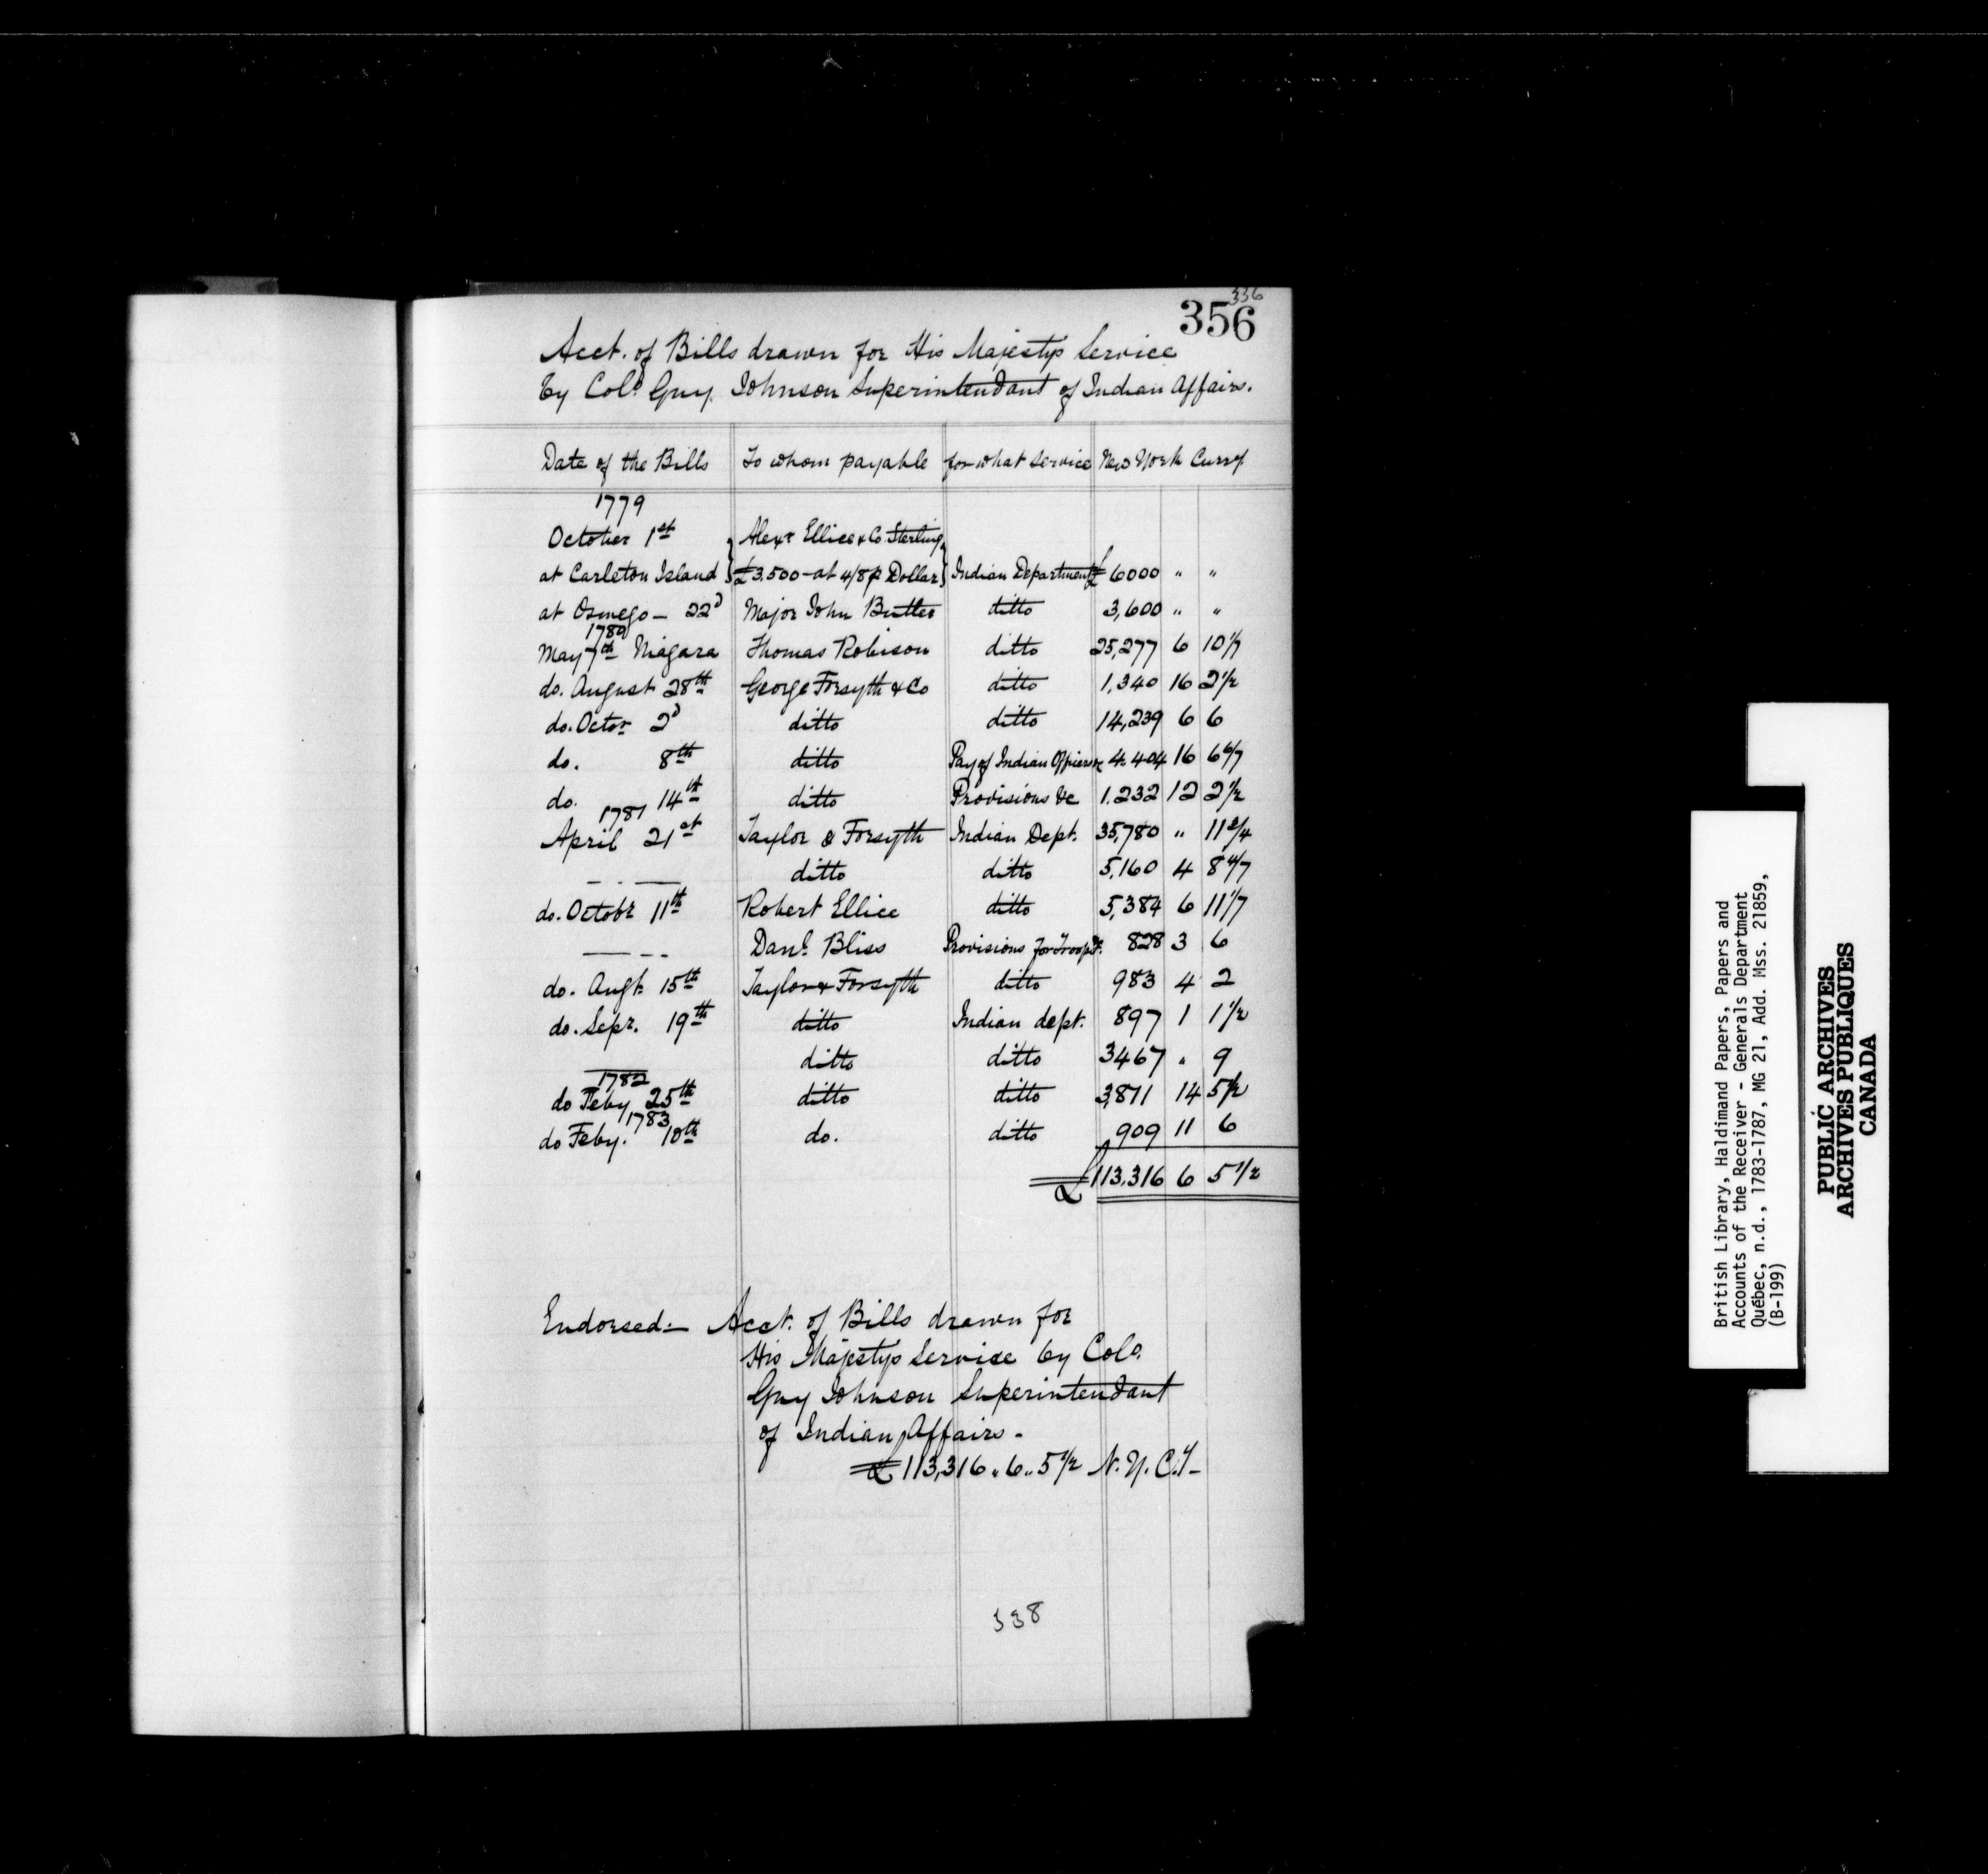 336
356
Acct. of Bills drawn for His Majestys Service
by Colo. Guy Johnson Superintendant of Indian Affairs.
Date of the Bills To whom payable for what service New York Curry
1779
October 1st Alexr Ellice & Co. Sterling
at Carleton Island £3,500 - at 4/8 p Dollar Indian Department £ 6000 " "
at Oswego - 22d Major John Butler ditto 3,600 " "
1780
May 7th Niagara Thomas Robison ditto 25,277 6 10 1/7
do. August 28th George Forsyth & Co ditto 1,340 16 2 1/2
do. Octor 2d ditto ditto 14,239 6 6
do. 8th ditto Pay of Indian Officers &c 4.404 16 6 6/7
do. 14th ditto Provisions &c 1.232 12 2 1/2
1781
April 21st Taylor & Forsyth Indian Dept. 35,780 " 11 3/4
ditto ditto 5,160 4 8 4/7
do. Octobr 11th Robert Ellice ditto 5,384 6 11 1/7
Danl. Bliss Provisions for Troops &c. 828 3 6
do. Augt. 15th Taylor & Forsyth ditto 983 4 2
do. Sepr. 19th ditto Indian dept. 897 1 1 1/2
ditto ditto 3467 " 9
1782
do Feby 25th ditto ditto 3,811 14 5 1/2
1783
do Feby. 10th do. ditto 909 11 6
£113,316 6 5 1/2
Endorsed:- Acct. of Bills drawn for
His Majestys Service by Colo.
Guy Johnson Superintendant
of Indian Affairs -
£113,316 " 6 " 5 1/2 N. Y. Cy -
338
British Library, Haldimand Papers, Papers and
Accounts of the Receiver - Generals Department
Québec, n.d., 1783-1787, MG 21, Add. Mss. 21859,
(B-199)
PUBLIC ARCHIVES
ARCHIVES PUBLIQUES
CANADA